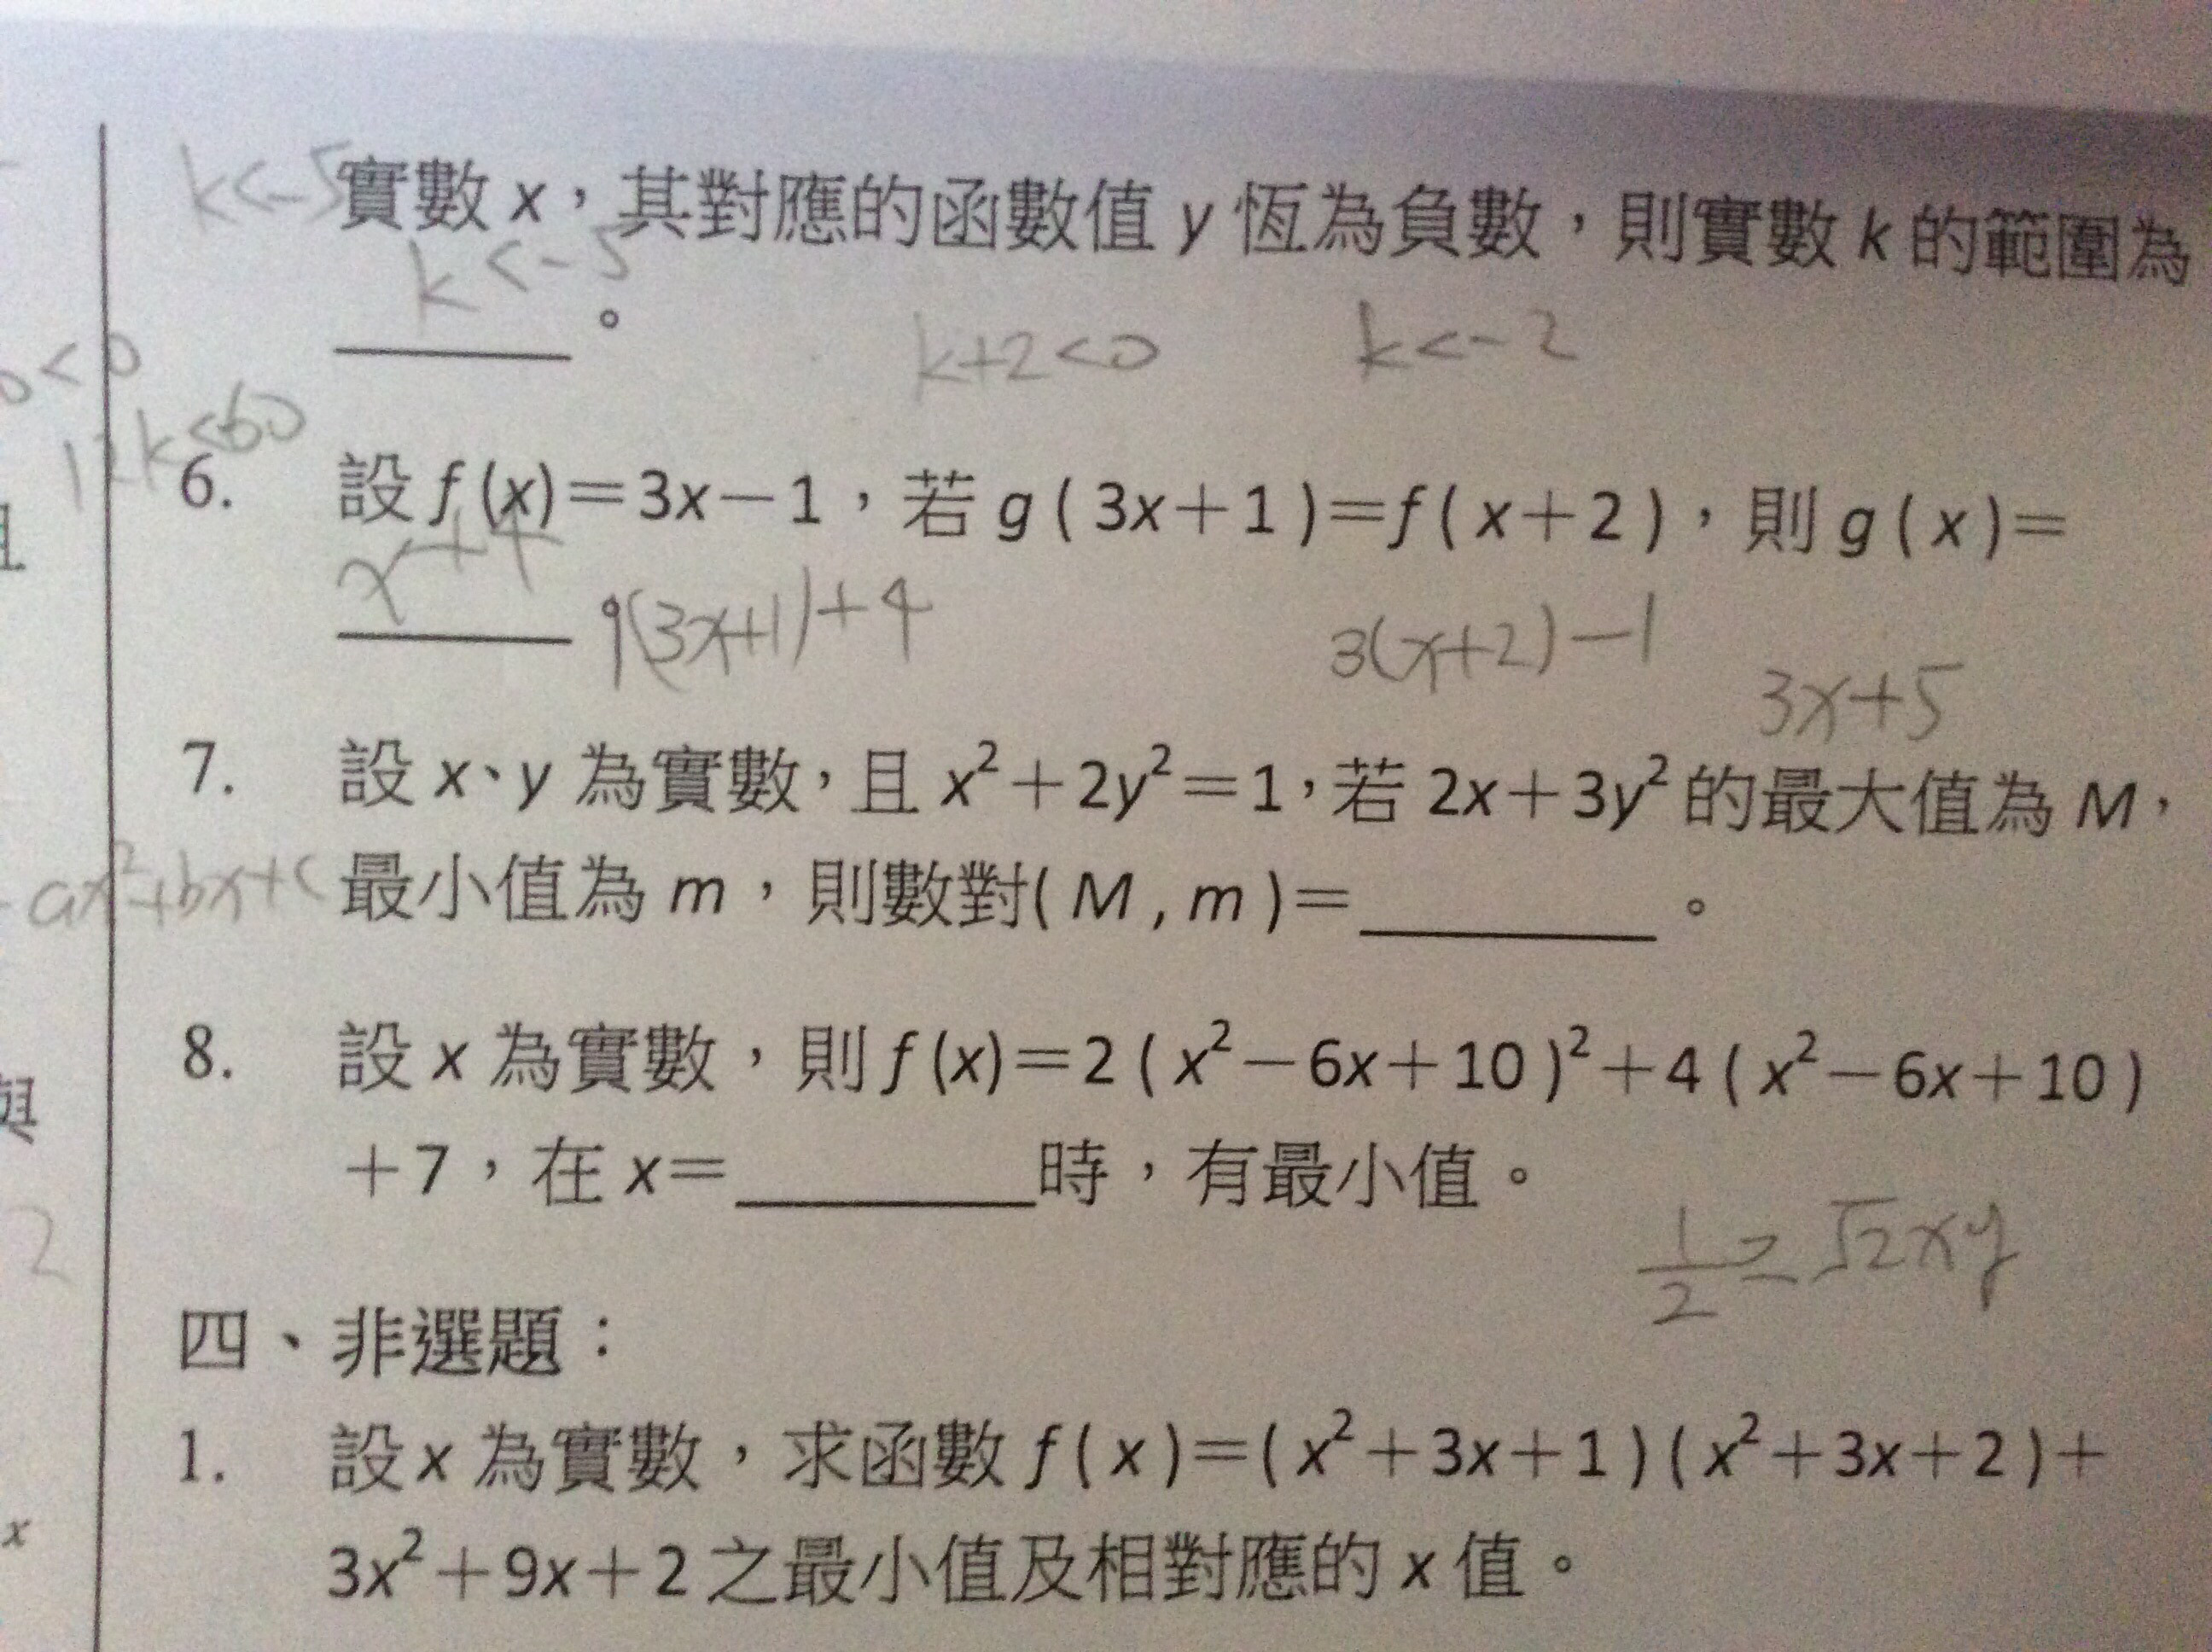 k<-5 實數 x，其對應的函數值 y 恆為負數，則實數 k 的範圍為
k<-5 。
k+2<0 k<-2
<0
12k<60
6. 設 f (x)＝3x－1，若 g ( 3x＋1 )＝f ( x＋2 )，則 g ( x )＝
x+4 。
(3x+1)+4 3(x+2)-1
3x+5
7. 設 x、y 為實數，且 x²＋2y²＝1，若 2x＋3y² 的最大值為 M，
ax²+bx+c 最小值為 m，則數對( M , m )＝________。
8. 設 x 為實數，則 f (x)＝2 ( x²－6x＋10 )²＋4 ( x²－6x＋10 )
＋7，在 x＝________時，有最小值。
1/2 ≥ √2xy
與
2
四、非選題：
1. 設 x 為實數，求函數 f ( x )＝( x²＋3x＋1 ) ( x²＋3x＋2 )＋
x
3x²＋9x＋2 之最小值及相對應的 x 值。